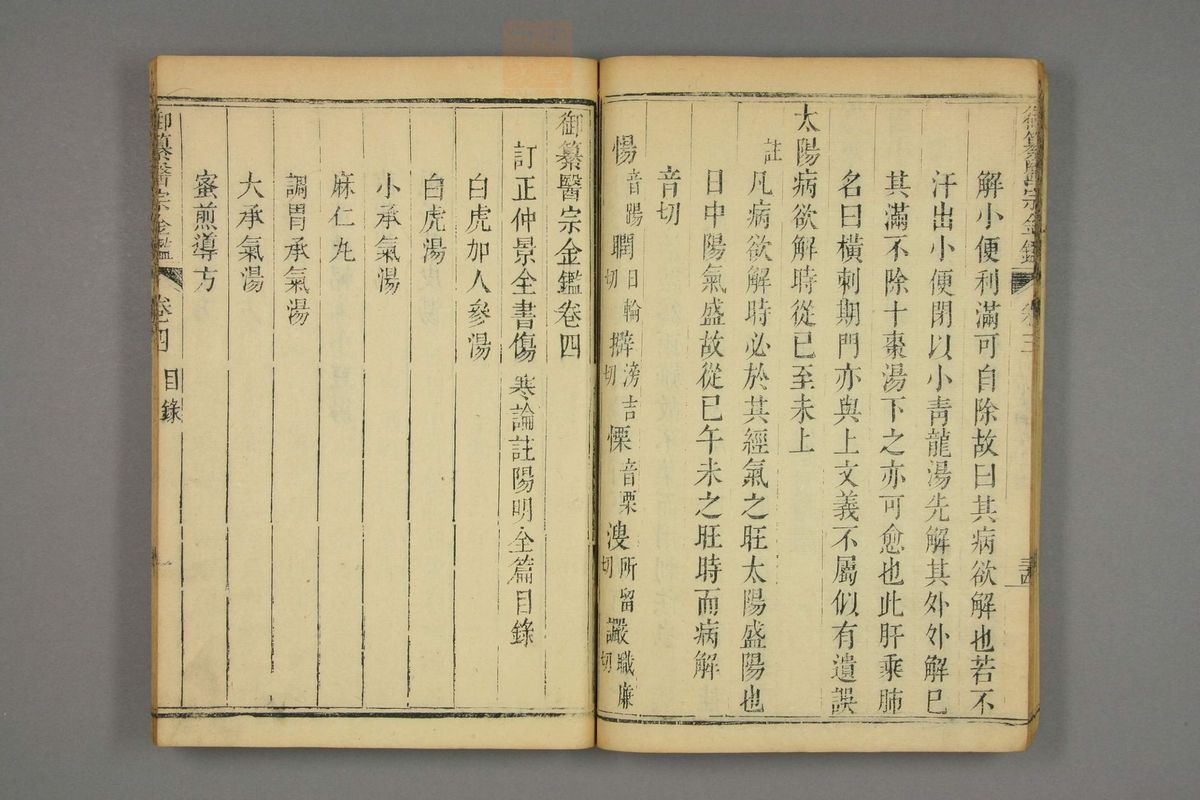 御纂醫宗金鑑 卷三 三四
解小便利滿可自除故曰其病欲解也若不
汗出小便閉以小靑龍湯先解其外外解已
其滿不除十棗湯下之亦可愈也此肝乘肺
名曰橫刺期門亦與上文義不屬似有遺誤
太陽病欲解時從巳至未上
註凡病欲解時必於其經氣之旺太陽盛陽也
日中陽氣盛故從巳午未之旺時而病解
音切
惕音踢 瞤日輪切 擗滂吉切 慄音栗 溲所留切 讝職廉切
御纂醫宗金鑑卷四
訂正仲景全書傷寒論註陽明全篇目錄
白虎加人參湯
白虎湯
小承氣湯
麻仁丸
調胃承氣湯
大承氣湯
蜜煎導方
御纂醫宗金鑑 卷四 目錄 一